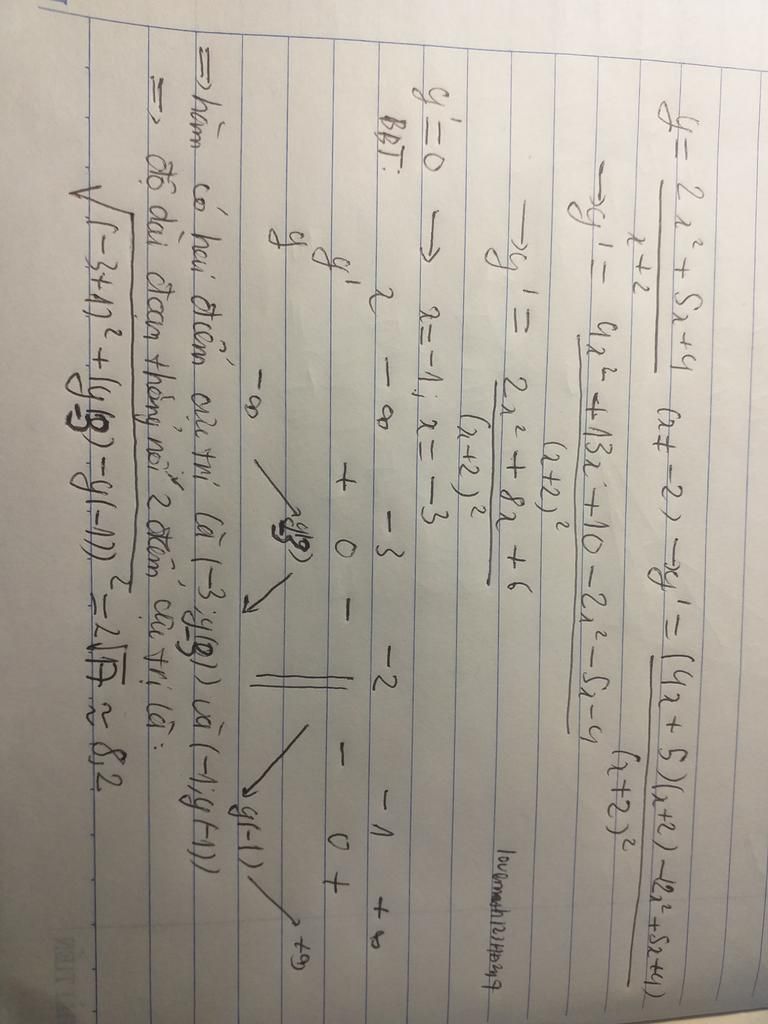 y = (2x² + 5x + 4)/(x + 2) (x ≠ -2) → y' = ((4x + 5)(x+2) - (2x² + 5x + 4))/(x+2)²
→ y' = (4x² + 13x + 10 - 2x² - 5x - 4)/(x+2)²
→ y' = (2x² + 8x + 6)/(x+2)²
y' = 0 → x = -1; x = -3
BBT:
x -∞ -3 -2 -1 +∞
y' + 0 - || - 0 +
y -∞ ↗ y(-3) ↘ || ↘ y(-1) ↗ +∞
⇒ hàm có hai điểm cực trị là (-3; y(-3)) và (-1; y(-1))
⇒ độ dài đoạn thẳng nối 2 điểm cực trị là:
√((-3+1)² + (y(-3) - y(-1))²) = 2√17 ≈ 8,2